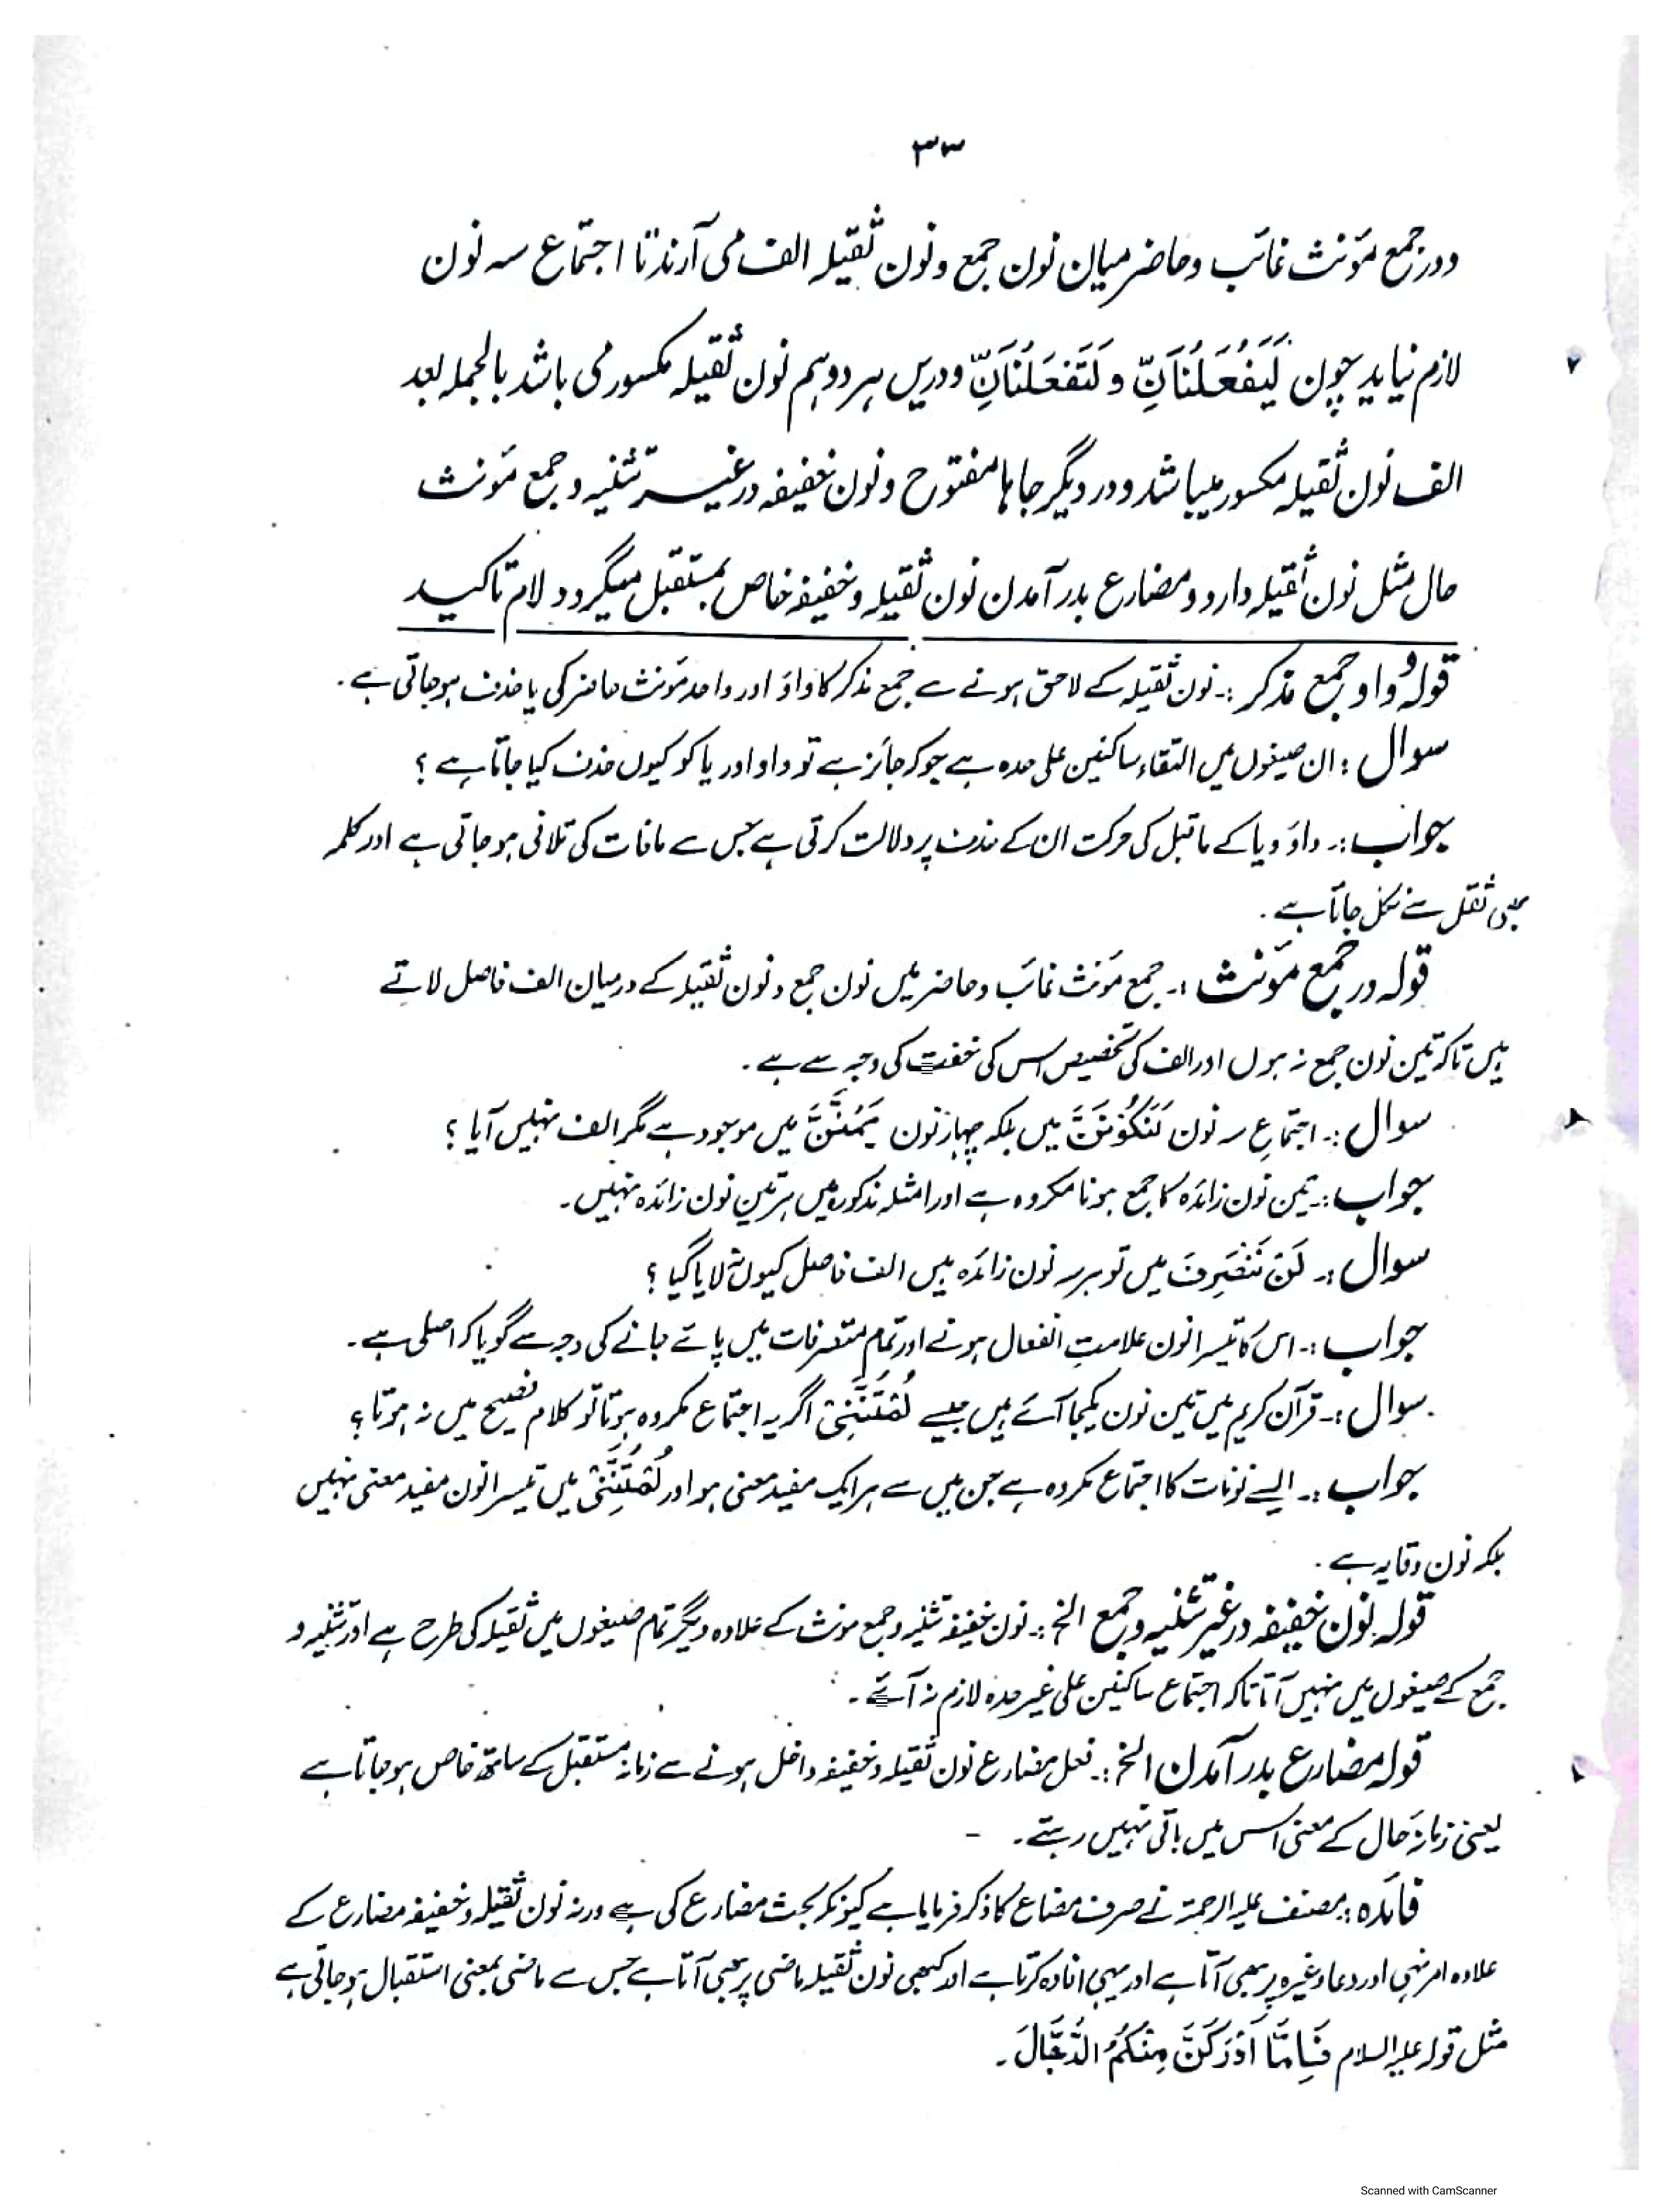 ۳۳
ودر جمع مؤنث غائب وحاضر میان نون جمع ونون ثقیلہ الف می آرند تا اجتماع سہ نون
لازم نیاید چون لَیَفْعَلْنَانِّ و لَتَفْعَلْنَانِّ ودریں ہر دو ہم نون ثقیلہ مکسور می باشد بالجملہ بعد
الف نون ثقیلہ مکسور میباشد ودر دیگر جاہا مفتوح ونون خفیفہ در غیر تثنیہ وجمع مؤنث
حال مثل نون ثقیلہ دارد ومضارع بدر آمدن نون ثقیلہ وخفیفہ خاص بمستقبل میگردد لام تاکید
قولہٗ واو جمع مذکر :۔ نون ثقیلہ کے لاحق ہونے سے جمع مذکر کا واؤ اور واحد مؤنث حاضر کی یا حذف ہوجاتی ہے ۔
سوال : ان صیغوں میں التقاء ساکنین علی حدہ ہے جو کہ جائز ہے تو واو اور یا کو کیوں حذف کیا جاتا ہے ؟
جواب :۔ واؤ ویا کے ماقبل کی حرکت ان کے حذف پر دلالت کرتی ہے جس سے مافات کی تلافی ہو جاتی ہے اور کلمہ
بھی ثقل سے نکل جاتا ہے ۔
قولہ در جمع مؤنث :۔ جمع مؤنث غائب وحاضر میں نون جمع ونون ثقیلہ کے درمیان الف فاصل لاتے
ہیں تاکہ تین نون جمع نہ ہوں اور الف کی تخصیص اس کی خفت کی وجہ سے ہے ۔
سوال :۔ اجتماعِ سہ نون لَنَکُوْنَنَّ میں بلکہ چہار نون یَمُنَنَّ میں موجود ہے مگر الف نہیں آیا ؟
جواب :۔ تین نون زائدہ کا جمع ہونا مکروہ ہے اور امثلہ مذکورہ میں ہر تین نون زائدہ نہیں ۔
سوال :۔ لَنْ نَنْصَرِفَ میں تو ہر سہ نون زائدہ ہیں الف فاصل کیوں نہ لایا گیا ؟
جواب :۔ اس کا تیسرا نون علامتِ انفعال ہونے اور تمام متصرفات میں پائے جانے کی وجہ سے گویا کہ اصلی ہے ۔
سوال :۔ قرآن کریم میں تین نون یکجا آئے ہیں جیسے لُمْتُنَّنِیْ اگر یہ اجتماع مکروہ ہوتا تو کلام فصیح میں نہ ہوتا ؟
جواب :۔ ایسے نونات کا اجتماع مکروہ ہے جن میں سے ہر ایک مفید معنی ہو اور لُمْتُنَّنِیْ میں تیسرا نون مفید معنی نہیں
بلکہ نون وقایہ ہے ۔
قولہ نون خفیفہ در غیر تثنیہ وجمع الخ :۔ نون خفیفہ تثنیہ وجمع مونث کے علاوہ دیگر تمام صیغوں میں ثقیلہ کی طرح ہے اور تثنیہ و
جمع کے صیغوں میں نہیں آتا تاکہ اجتماع ساکنین علی غیر حدہ لازم نہ آئے ۔
قولہ مضارع بدر آمدن الخ :۔ فعل مضارع نون ثقیلہ وخفیفہ داخل ہونے سے زمانہ مستقبل کے ساتھ خاص ہوجاتا ہے
یعنی زمانہ حال کے معنی اس میں باقی نہیں رہتے ۔
فائدہ :۔ مصنف علیہ الرحمۃ نے صرف مضاع کا ذکر فرمایا ہے کیونکہ بحث مضارع کی ہے ورنہ نون ثقیلہ وخفیفہ مضارع کے
علاوہ امر نہی اور دعا وغیرہ پر بھی آتا ہے اور یہی افادہ کرتا ہے اور کبھی نون ثقیلہ ماضی پر بھی آتا ہے جس سے ماضی بمعنی استقبال ہوجاتی ہے
مثل قولہ علیہ السلام فَاِمَّا اَدْرَکَنَّ مِنْکُمُ الدَّجَّالَ ۔
Scanned with CamScanner